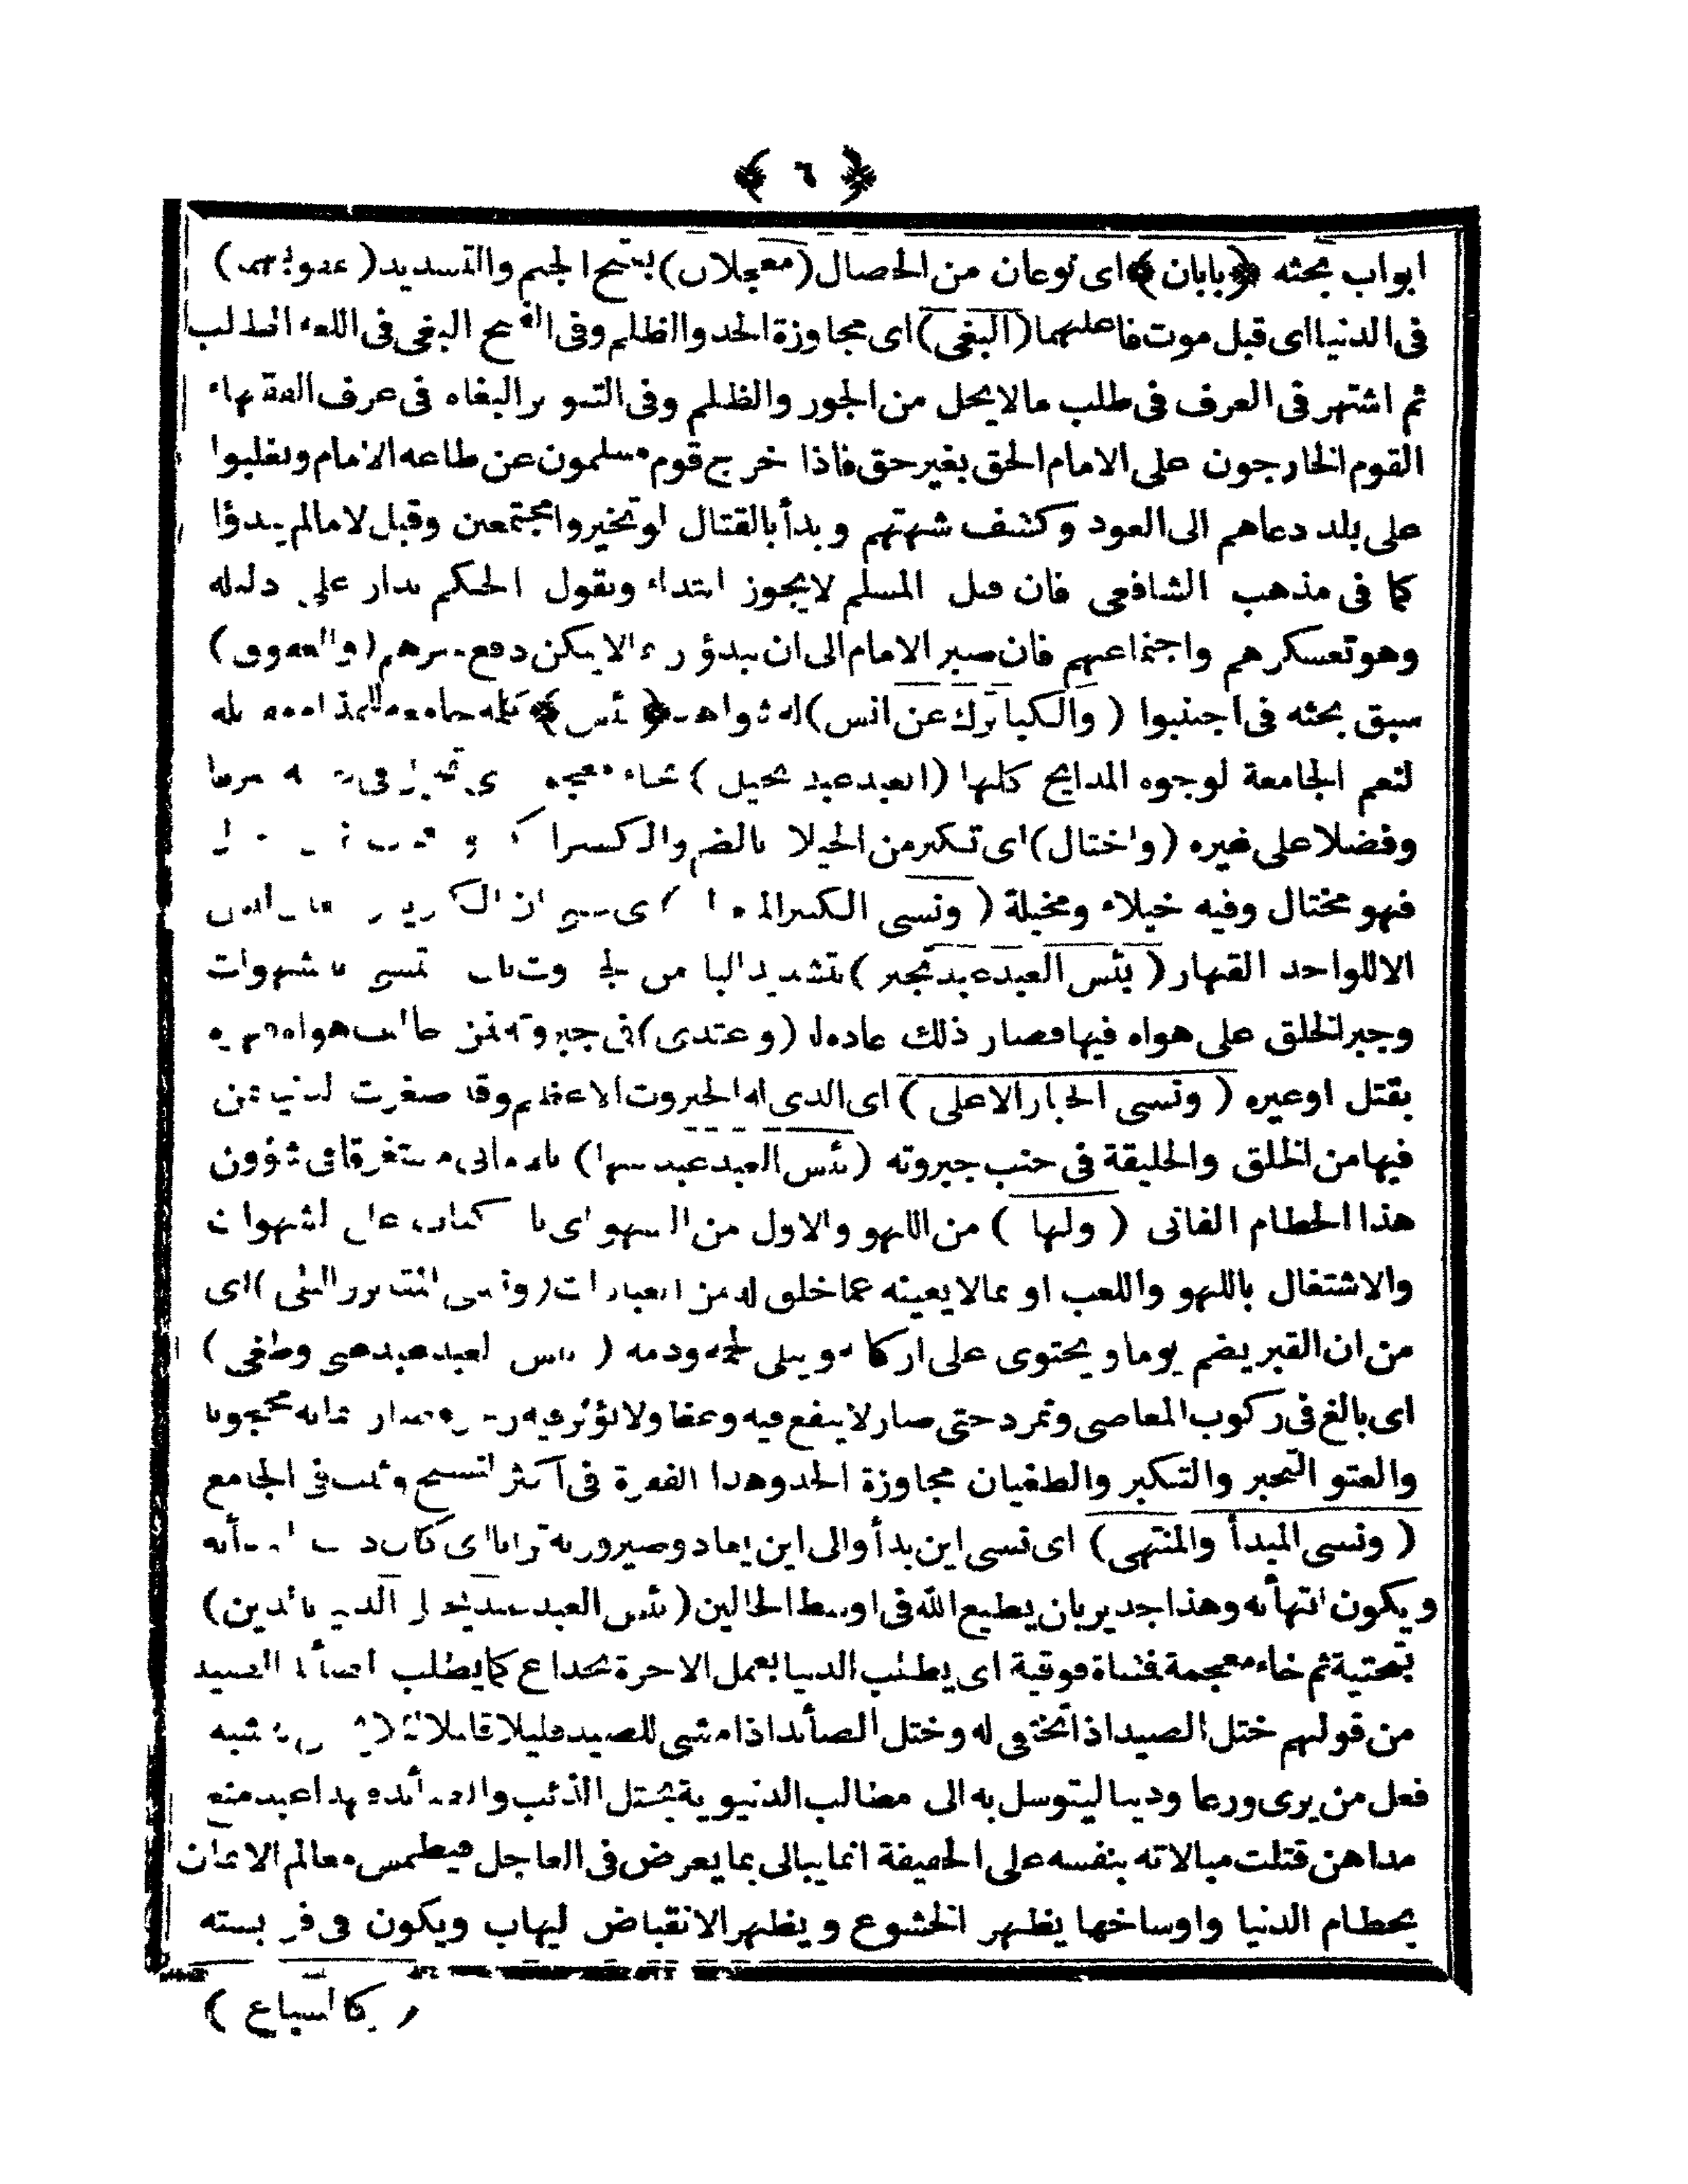 ﴿ ٦ ﴾
ابواب بحثه ﴿بابان﴾ اى نوعان من الخصال (معجلان) بفتح الجيم والتشديد (عقوبتهما)
فى الدنيا اى قبل موت فاعليهما (البغى) اى مجاوزة الحد والظلم وفى الفتح البغى فى اللغة الطلب
ثم اشتهر فى العرف فى طلب مالايحل من الجور والظلم وفى التنوير البغاه فى عرف الفقهاء
القوم الخارجون على الامام الحق بغير حق فاذا خرج قوم مسلمون عن طاعه الامام وتغلبوا
على بلد دعاهم الى العود وكشف شبهتهم وبدأ بالقتال لو تحيزوا مجتمعين وقيل لا مالم يبدؤا
كما فى مذهب الشافعى فان قتل المسلم لايجوز ابتداء ونقول الحكم يدار على دليله
وهو تعسكرهم واجتماعهم فان صبر الامام الى ان يبدؤ لا يمكن دفع شرهم (والعقوق)
سبق بحثه فى اجتنبوا (والكبائر ك عن انس) له شواهد ﴿بئس﴾ كلة جامعة للمذام مقابلة
لنعم الجامعة لوجوه المدايح كلها (العبد عبد تخيل) بخاء معجمة اى تخيل فى
وفضلا على غيره (واختال) اى تكبر من الخيلا بالضم والكسر
فهو مختال وفيه خيلاء ومخيلة (ونسى الكبير المتعال) اى نسى ان الكبرياء ليس
الا للواحد القهار (بئس العبد عبد تجبر) بتشديد البا من الشهوات
وجبر الخلق على هواه فيها فصار ذلك عادة له (واعتدى) فى جبروته فمن خالف هواه قهره
بقتل اوغيره (ونسى الجبار الاعلى) اى الذى له الجبروت الاعظم وقد صغرت الدنيا بمن
فيها من الخلق والخليقة فى جنب جبروته (بئس العبد عبد سها) بالامانى مستغرقا فى شؤون
هذا الحطام الفانى (ولها) من اللهو والاول من السهو اى با كبابه على الشهوات
والاشتغال باللهو واللعب او بمالايعينه عما خلق له من العبادات (ونسى المقابر والبلى) اى
من ان القبر يضم يوما ويحتوى على اركانه ويبلى لحمه ودمه (بئس العبد عبد عتى وطغى)
اى بالغ فى ركوب المعاصى وتمرد حتى صار لا ينفع فيه وعظ ولا يؤثر فيه زجر فصار محجوبا
والعتو التجبر والتكبر والطغيان مجاوزة الحد وهذا الفقرة فى اكثر النسخ وثبت فى الجامع
(ونسى المبدأ والمنتهى) اى نسى اين بدأ والى اين يعاد وصيرورته ترابا اى كان
ويكون انتهائه وهذا جدير بان يطيع الله فى اوسط الحالين (بئس العبد عبد يختل الدنيا بالدين)
بتحتية ثم خاء معجمة فمثناة فوقية اى يطلب الدنيا بعمل الاخرة بخداع كما يطلب الصائد الصيد
من قولهم ختل الصيد اذا تختى له وختل الصائد اذا مشى للصيد قليلا قليلا شبه
فعل من يرى ورعا ودينا ليتوسل به الى مطالب الدنيوية بختل الذئب والصائد فهذا عبد متصنع
مداهن قتلت مبالاته بنفسه على الحقيقة انما يبالى بما يعرض فى العاجل فيطمس معالم الايمان
بحطام الدنيا واوساخها يظهر الخشوع ويظهر الانقباض ليهاب ويكون فى
(كالسباع)